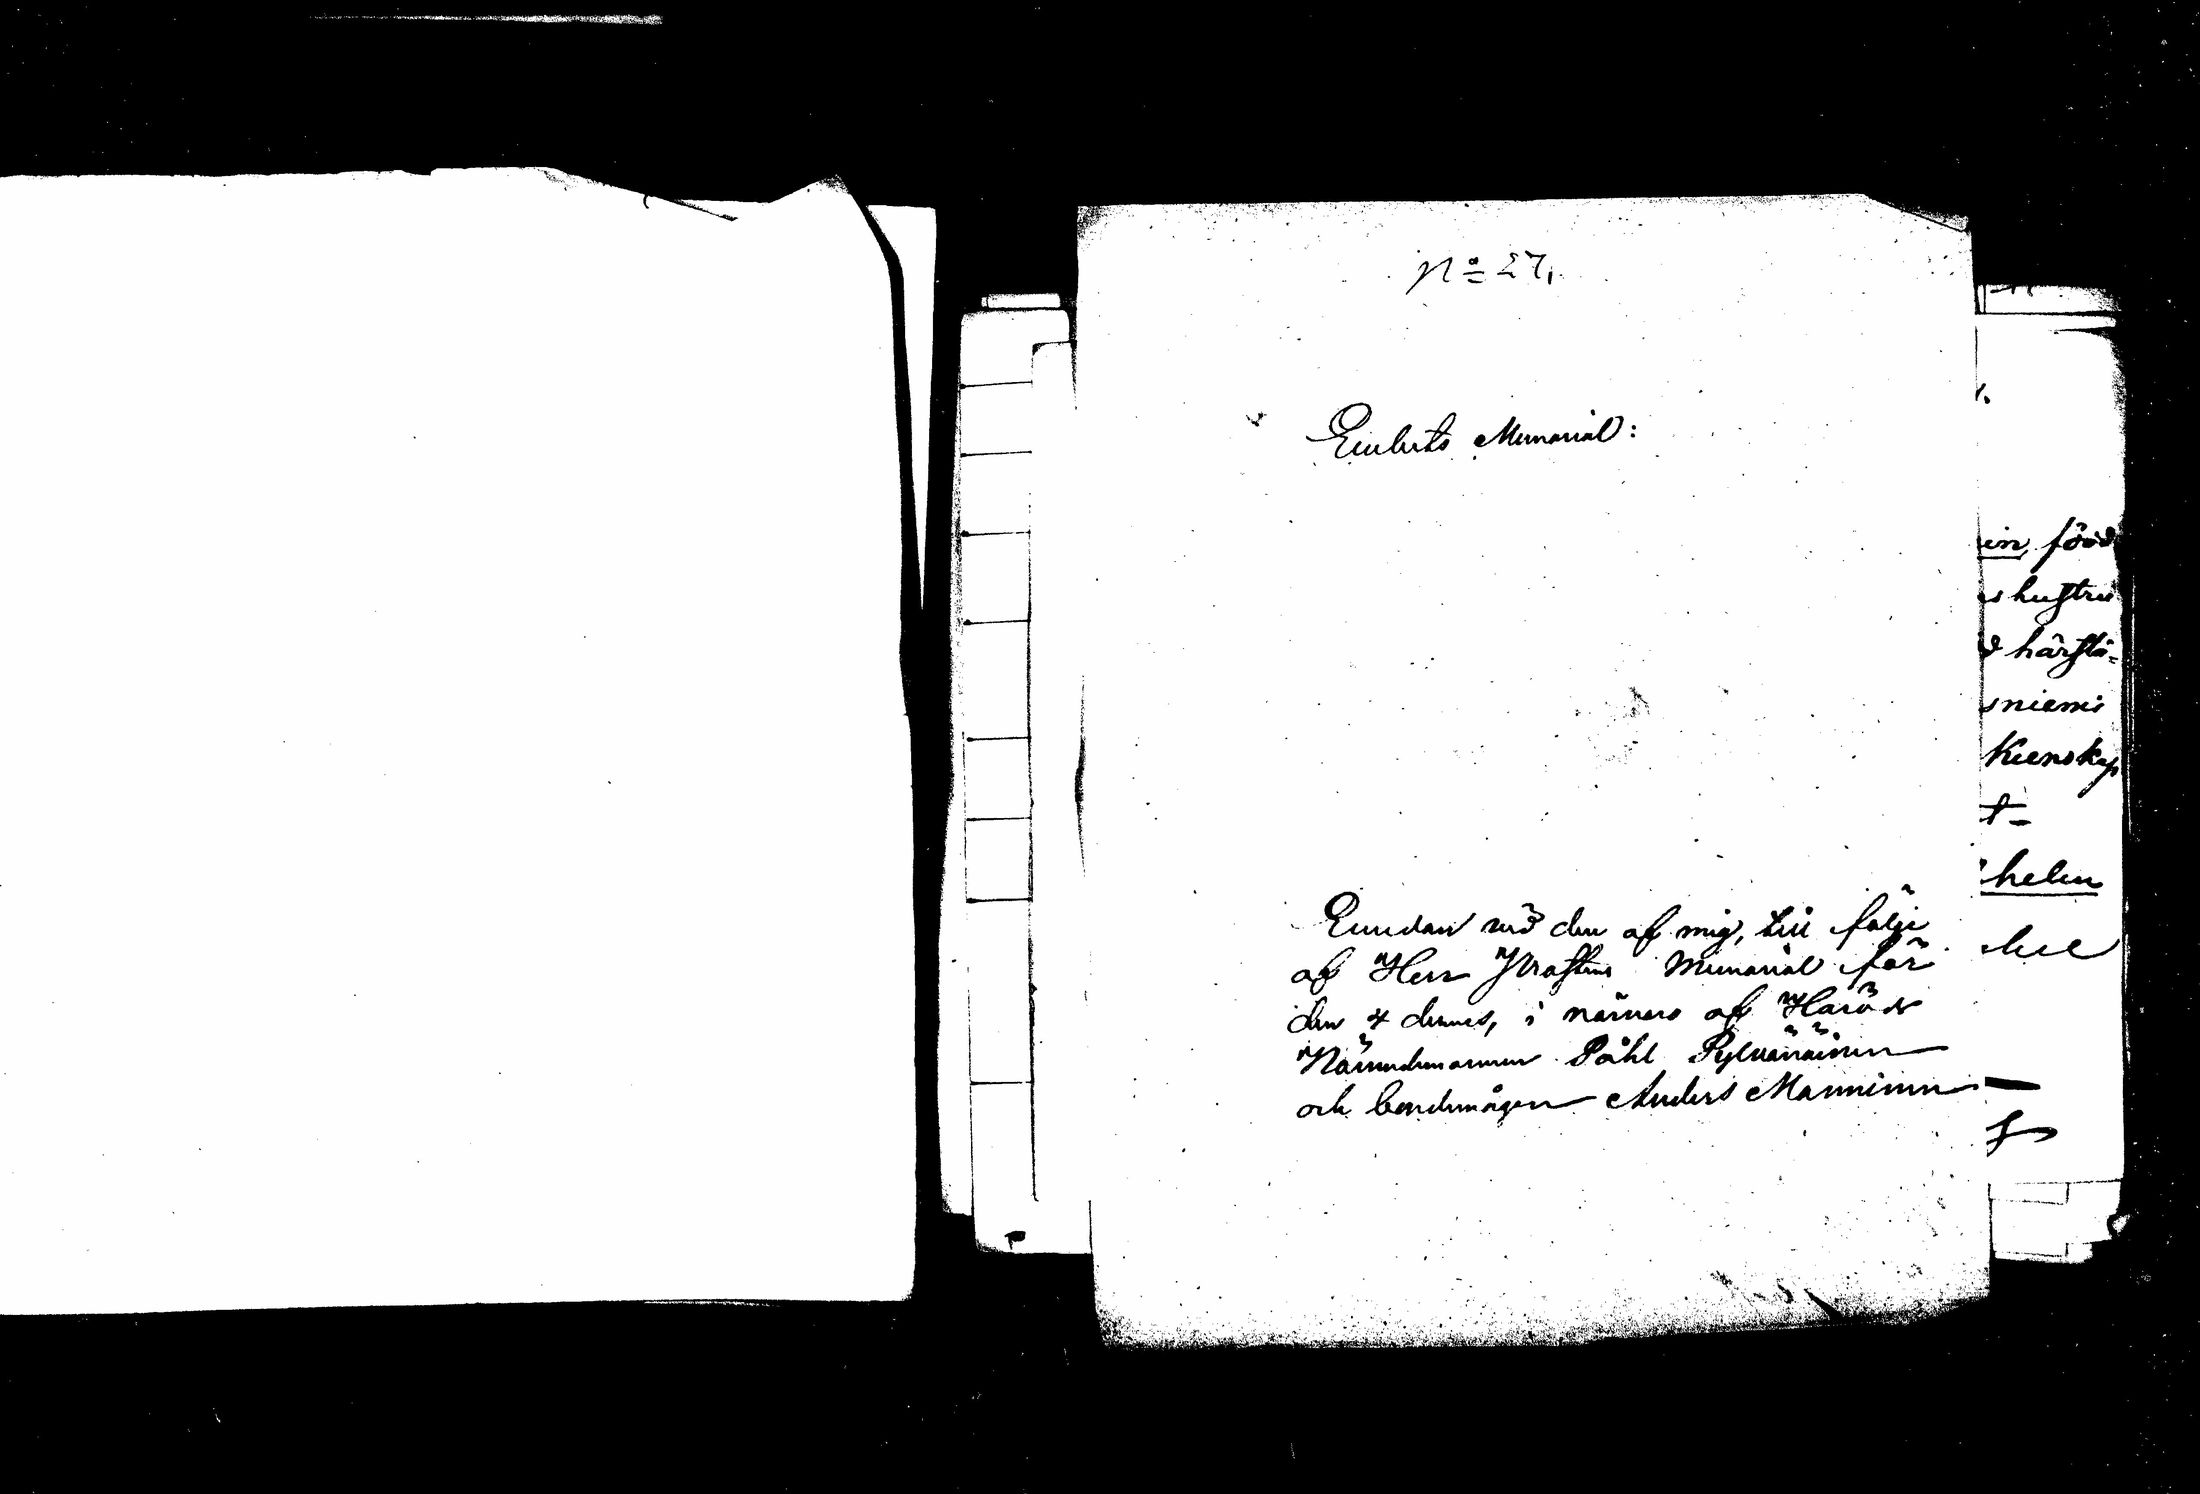 No 27,
Embets Memorial:
Emedan vid den af mig, till följe
af Herr Memorial för
den 4 dennes, i närvaro af Härads
Nämndemannen Påhl Pylvänäinen
och bondemågen Anders Manninen
in, född
s hustru
härstä-
sniemis
Kienskep
t-
helm